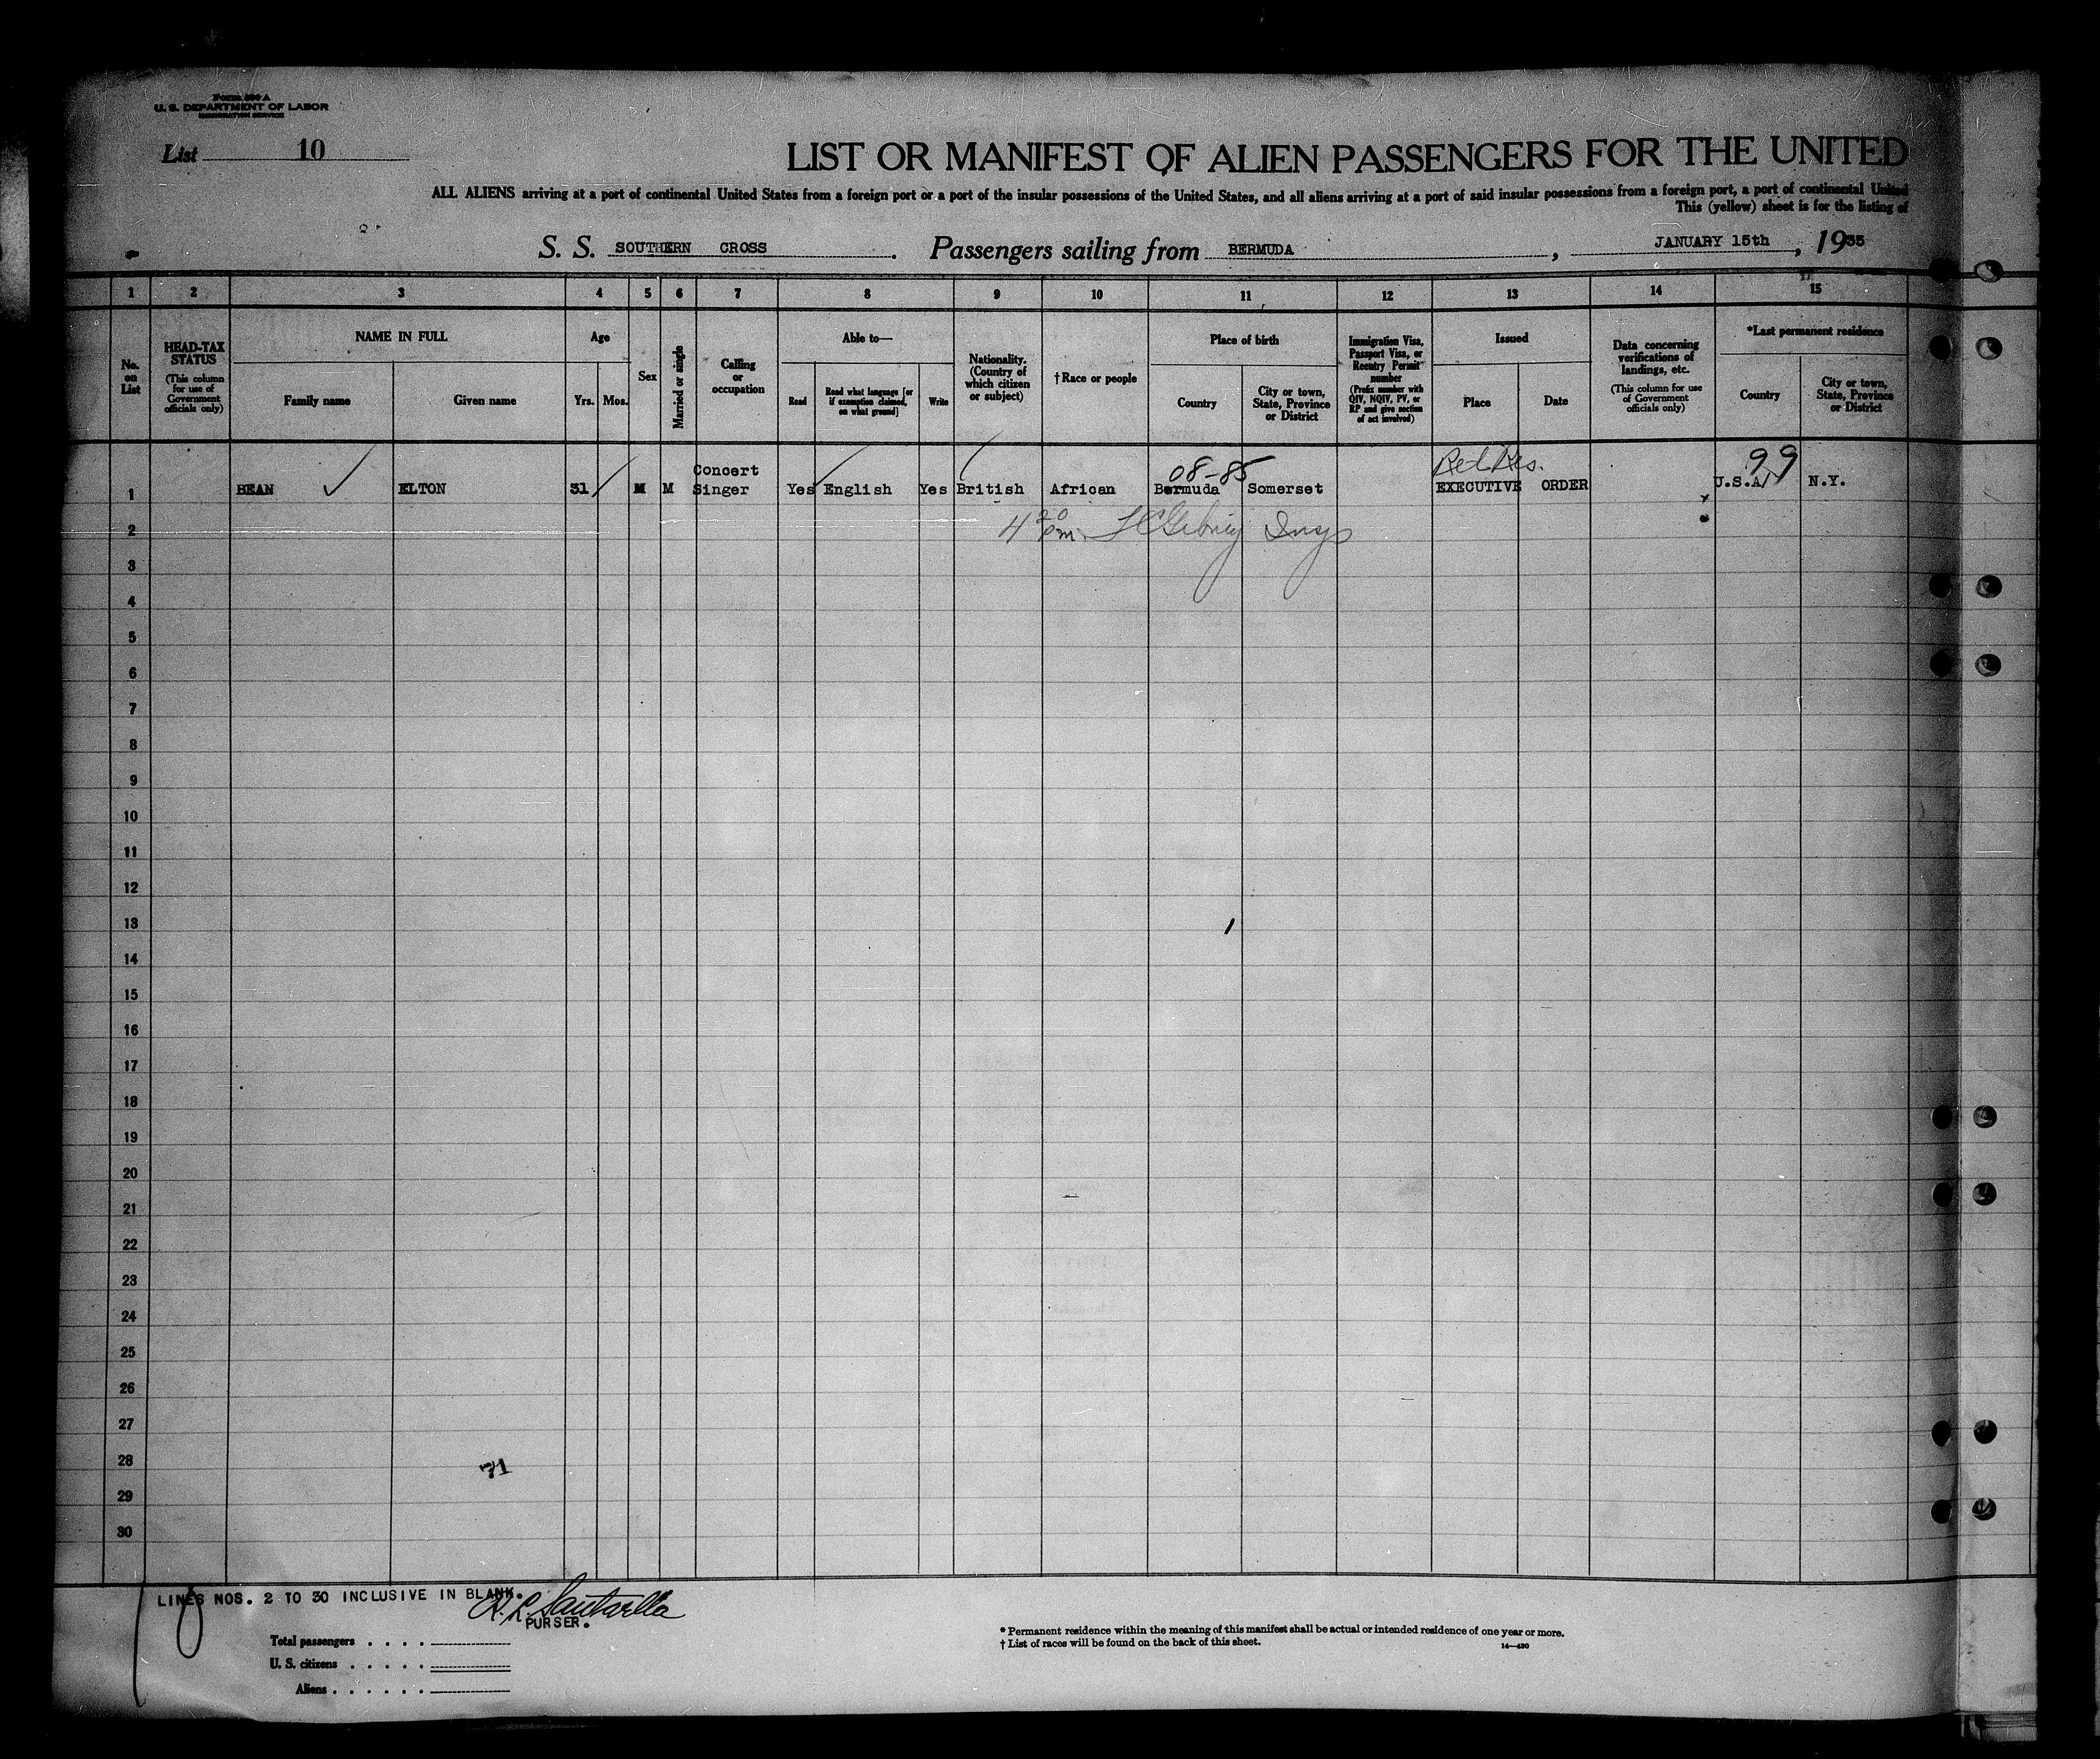 Form 500 A
U. S. DEPARTMENT OF LABOR
IMMIGRATION SERVICE
List 10
LIST OR MANIFEST OF ALIEN PASSENGERS FOR THE UNITED
ALL ALIENS arriving at a port of continental United States from a foreign port or a port of the insular possessions of the United States, and all aliens arriving at a port of said insular possessions from a foreign port, a port of continental United
This (yellow) sheet is for the listing of
S. S. SOUTHERN CROSS. Passengers sailing from BERMUDA, JANUARY 15th, 1935
1 2 3 4 5 6 7 8 9 10 11 12 13 14 15
No. on List
HEAD-TAX STATUS
(This column for use of Government officials only)
NAME IN FULL
Family name
Given name
Age
Yrs. Mos.
Sex
Married or single
Calling or occupation
Able to—
Read
Read what language [or if exemption claimed, on what ground]
Write
Nationality. (Country of which citizen or subject)
†Race or people
Place of birth
Country
City or town, State, Province or District
Immigration Visa, Passport Visa, or Reentry Permit number
(Prefix number with QIV, NQIV, PV, or RP and give section of act involved)
Issued
Place
Date
Data concerning verifications of landings, etc.
(This column for use of Government officials only)
*Last permanent residence
Country
City or town, State, Province or District
08-85
99
1 BEAN ELTON 31 M M Concert Singer Yes English Yes British African Bermuda Somerset EXECUTIVE ORDER U.S.A. N.Y.
2
4 20 pm
3
4
5
6
7
8
9
10
11
12
13
14
15
16
17
18
19
20
21
22
23
24
25
26
27
28
71
29
30
LINES NOS. 2 TO 30 INCLUSIVE IN BLANK.
PURSER.
Total passengers . . . .
U. S. citizens . . . . .
Aliens . . . . . .
* Permanent residence within the meaning of this manifest shall be actual or intended residence of one year or more.
† List of races will be found on the back of this sheet.
14—430